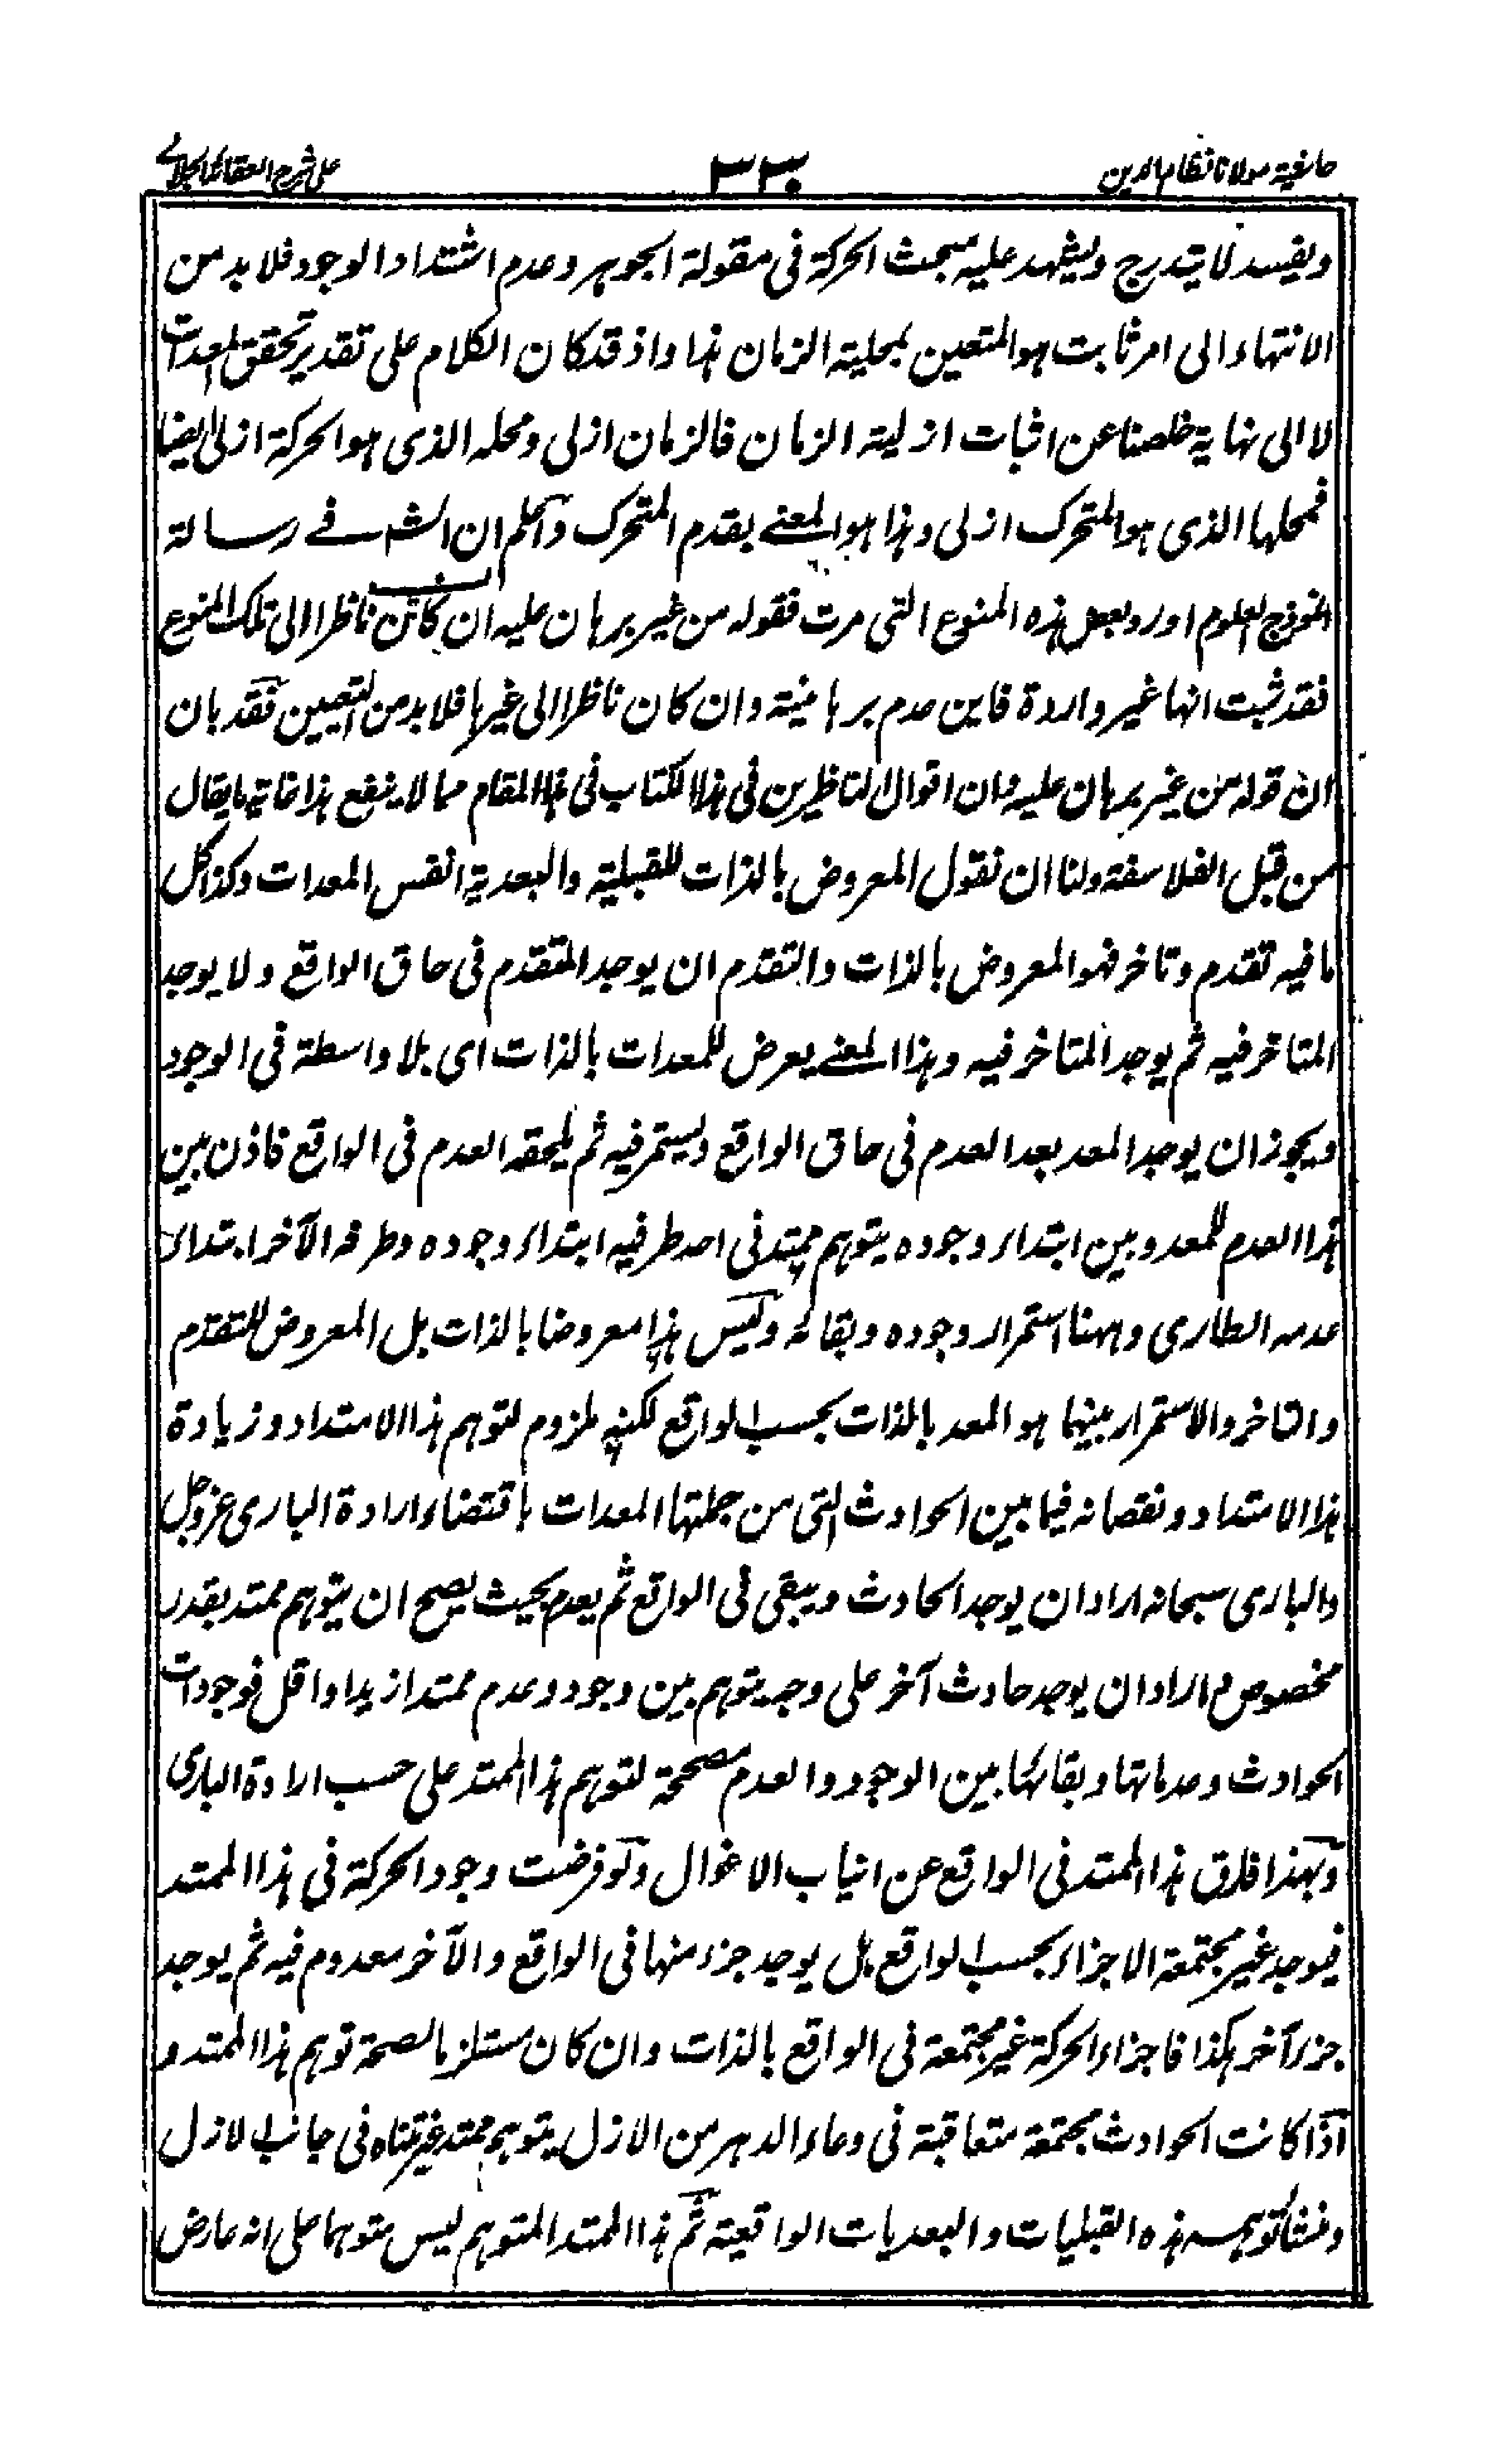 حاشية مولانا نظام الدين
٣٣٠
على شرح العقائد الجلالي
ويفسد لا يتدرج ويشهد عليه مبحث الحركة في مقولة الجوهر وعدم اشتداد الوجود فلا بد من
الانتهاء الى امر ثابت هو المتعين بمحلية الزمان هذا واذ قد كان الكلام على تقدير تحقق المعدات
لا الى نهاية خلصنا عن اثبات ازلية الزمان فالزمان ازلي ومحله الذي هو الحركة ازلي ايضا
فمحلها الذي هو المتحرك ازلي وهذا هو المعنى بقدم المتحرك واعلم ان الش في رسالة
انموذج العلوم اورد بعض هذه المنوع التي مرت فقوله من غير برهان عليه ان كان ناظرا الى تلك المنوع
فقد ثبت انها غير واردة فاين عدم برهانية وان كان ناظرا الى غيرها فلا بد من التعيين فقد بان
ان قوله من غير برهان عليه وان اقوال الناظرين في هذا الكتاب في هذا المقام مما لا ينفع هذا غاية ما يقال
من قبل الفلاسفة ولنا ان نقول المعروض بالذات للقبلية والبعدية انفس المعدات وكذا كل
ما فيه تقدم وتاخر فهو المعروض بالذات والتقدم ان يوجد المتقدم في حاق الواقع ولا يوجد
المتاخر فيه ثم يوجد المتاخر فيه وهذا المعنى يعرض للمعدات بالذات اى بلا واسطة في الوجود
ويجوز ان يوجد المعد بعد العدم في حاق الواقع ويستمر فيه ثم يلحقه العدم في الواقع فاذن بين
هذا العدم للمعد وبين ابتداء وجوده يتوهم ممتد في احد طرفيه ابتداء وجوده وطرفه الآخر ابتداء
عدمه الطارى وههنا استمرار وجوده وبقائه وليس هذا معروضا بالذات بل المعروض للتقدم
والتاخر والاستمرار بينهما هو المعد بالذات بحسب الواقع لكنه ملزوم لتوهم هذا الامتداد وزيادة
هذا الامتداد ونقصانه فيما بين الحوادث التي من جملتها المعدات باقتضاء ارادة البارى عز وجل
والبارى سبحانه اراد ان يوجد الحادث ويبقى في الواقع ثم يعدم بحيث يصح ان يتوهم ممتد بقدر
مخصوص واراد ان يوجد حادث آخر على وجه يتوهم بين وجود وعدم ممتد ازيد او اقل فوجودات
الحوادث وعدماتها وبقائها بين الوجود والعدم مصححة لتوهم هذا الممتد على حسب ارادة البارى
وبهذا فارق هذا الممتد في الواقع عن انياب الاغوال ولو فرضت وجود الحركة في هذا الممتد
فيوجد غير مجتمعة الاجزاء بحسب الواقع بل يوجد جزء منها في الواقع والآخر معدوم فيه ثم يوجد
جزء آخر هكذا فاجزاء الحركة غير مجتمعة في الواقع بالذات وان كان مستلزما لصحة توهم هذا الممتد و
اذا كانت الحوادث مجتمعة متعاقبة في وعاء الدهر من الازل يتوهم ممتد غير متناه في جانب الازل
ومنشأ توهمه هذه القبليات والبعديات الواقعية ثم هذا الممتد المتوهم ليس متوهما على انه عارض